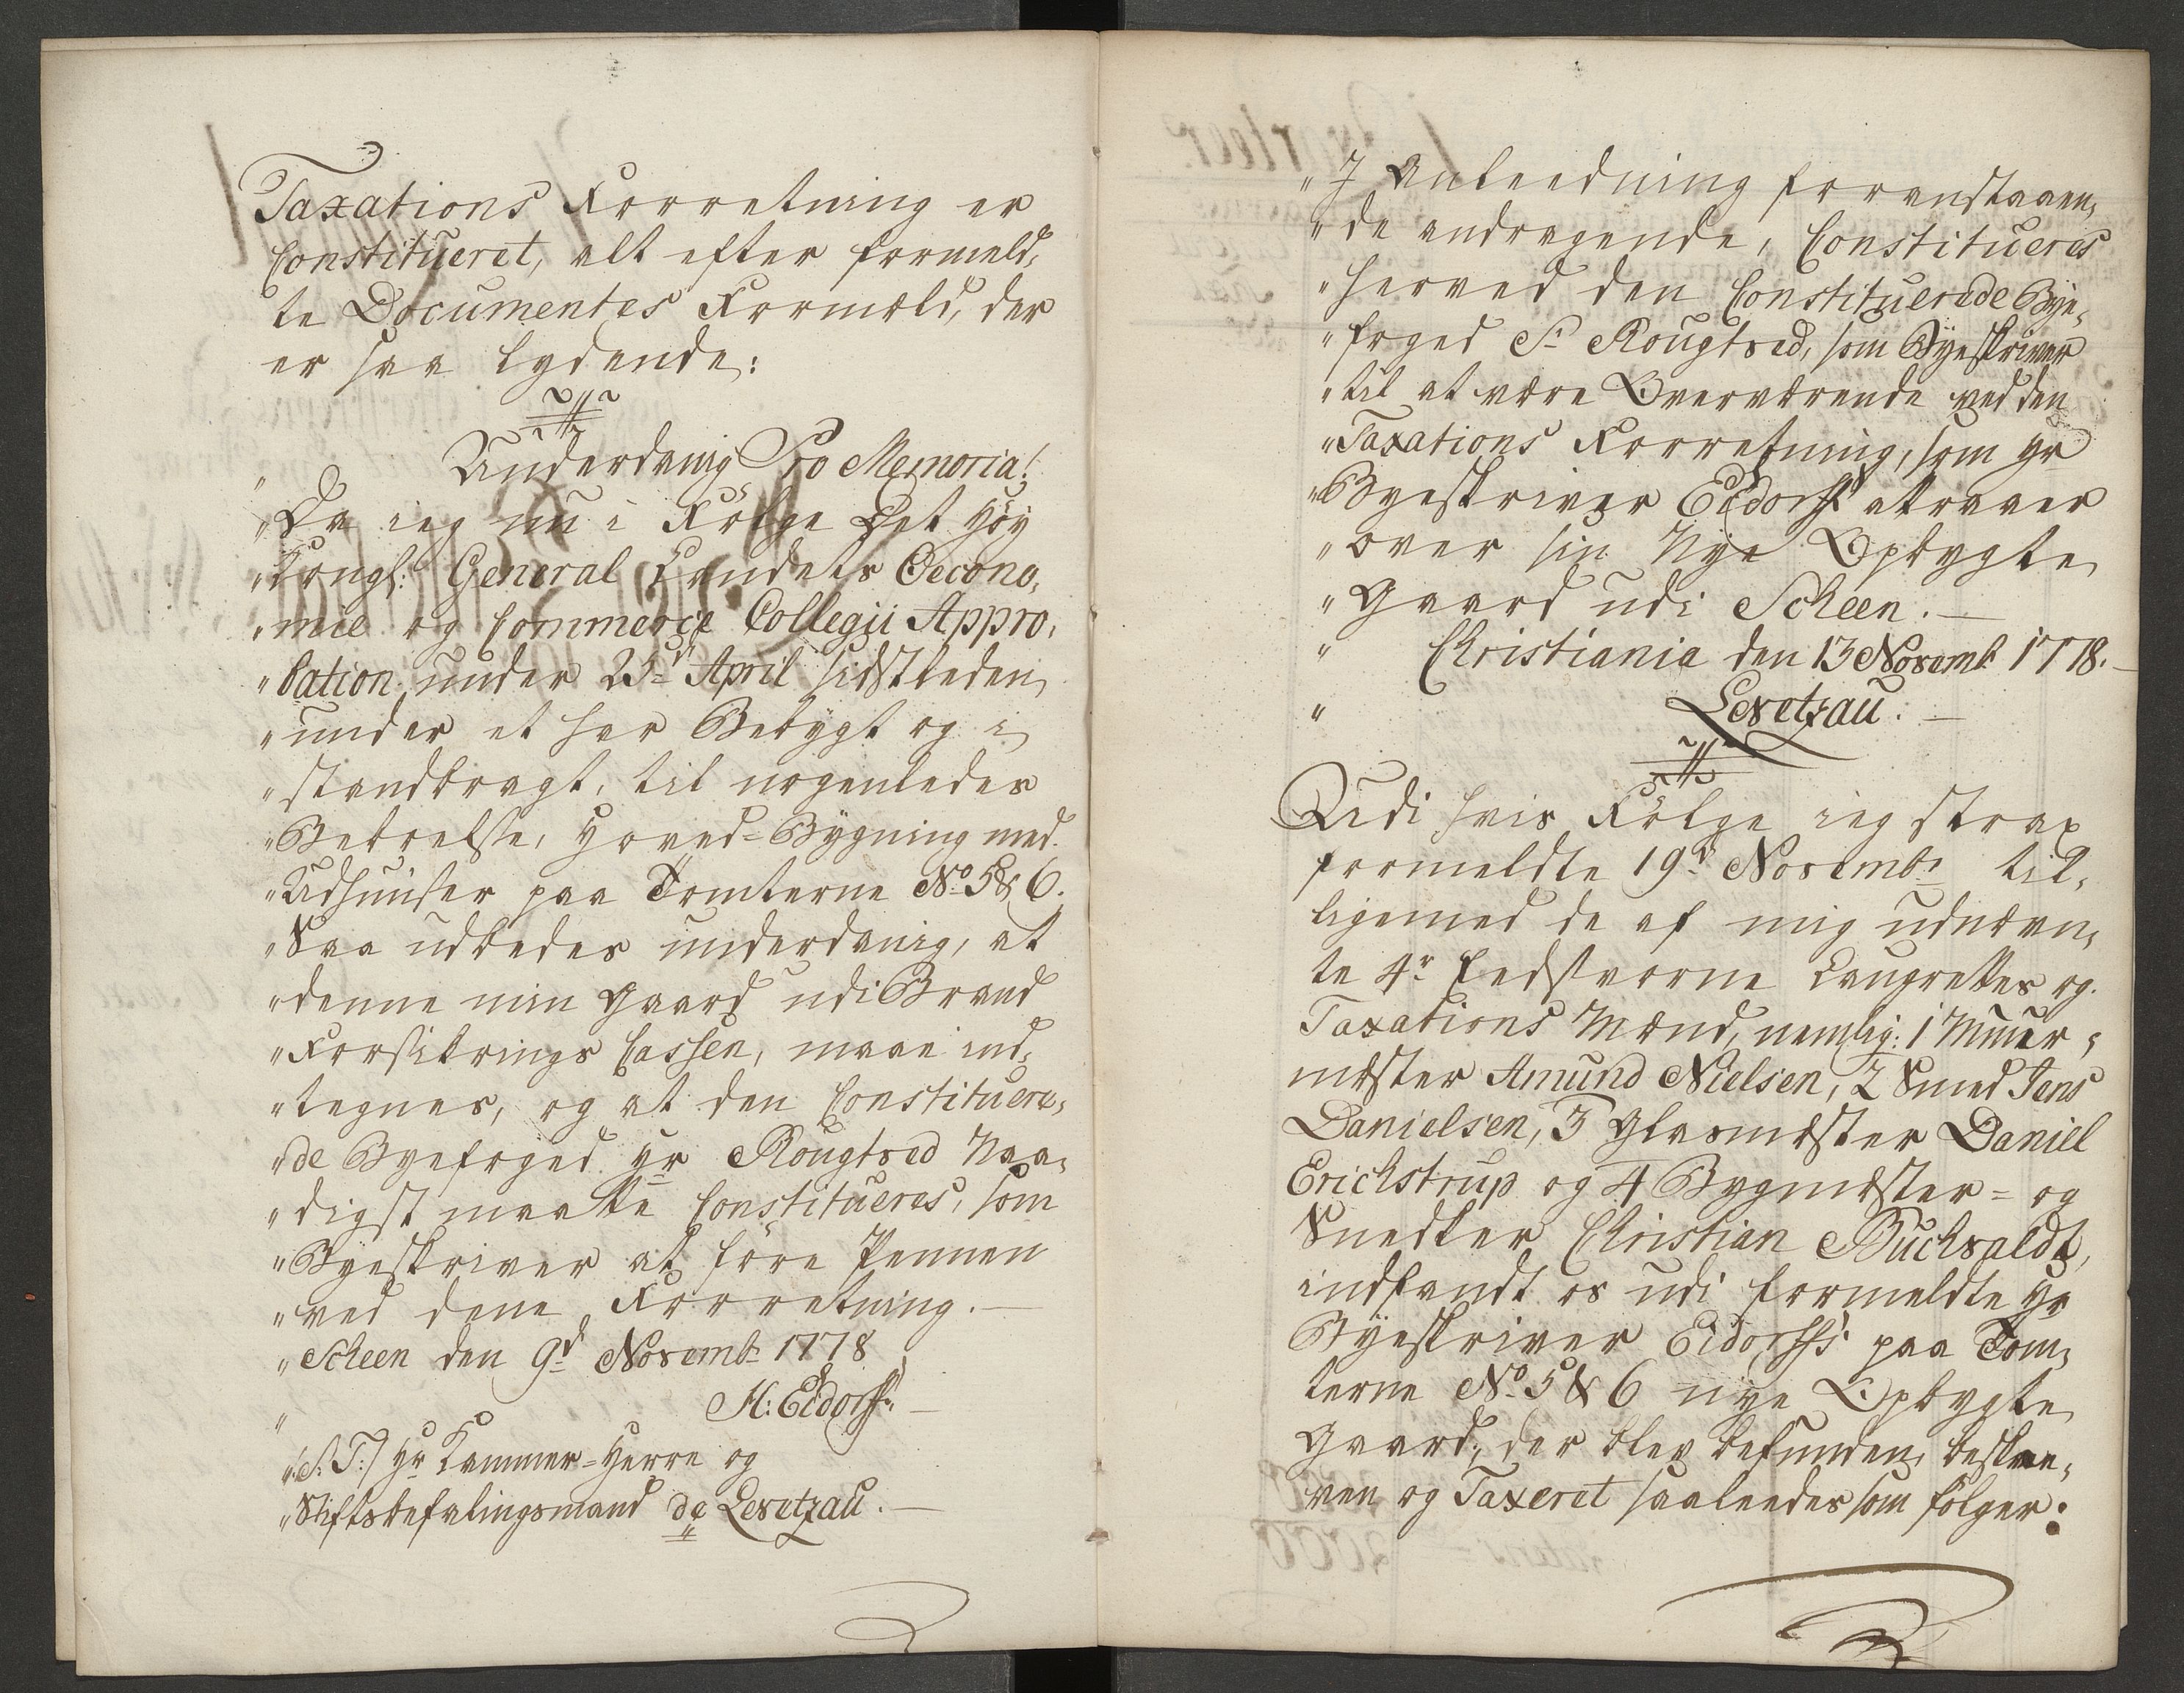 Taxations Forretning er
Constitueret, alt efter formeld,
te Documentes Formæld, der
er saa lydende:
" Underdanig Pro Memoria!
"Da ieg nu i Følge Det Høy
"Kongl: General Landets Oecono,
"mie og Commerce Collegii Appro,
"bation under 25de April sidstleden
"under et har Bebygt og i
"standbragt, til nogenledes
"Beboelse, Hoved=Bygning med
"Udhuuser paa Tomterne No 5 & 6.
"Saa udbedes underdanig, at
"denne min Gaard udi Brand
"Forsikrings Cassen, maae ind,
"tegnes, og at den Constituere,
"de Byefoged Hr Rougtved Naa,
"digst maatte Constitueres, som
"Byeskriver at føre Pennen
"ved dene Forretning. —
"Scheen den 9d Novembr 1778
" H: Eidorff. —
"/S: T:/ Hr Kammer=Herre og
"Stiftsbefalingsmand de Levetzau. —
"I Anleedning foranstaaen,
"de andragende, Constitueres
"herved den Constituerede Bye,
"foged Sr Rougtved, som Byeskriver
"til at være Overværende ved den
"Taxations Forretning, som Hr
"Byeskriver Eidorff attraaer
"over sin Nye Opbygte
"Gaard udi Scheen. —
" Christiania den 13 Novembr 1778. —
" Levetzau. —
Udi hvis Følge ieg strax
formeldte 19d Novembr til,
ligemed de af mig udnævn,
te 4r Eedsvorne Laugrettes og
Taxations Mænd, nemlig: 1 Muur,
mæster Amund Nielsen, 2 Smed Jens
Danielsen, 3 Glasmæster Daniel
Erichstrup og 4 Bygmæster= og
Snedker Christian Buchvaldt,
indfandt os udi formeldte Hr
Byeskriver Eidorffs paa Tom,
terne No 5 & 6 nye Opbygte
Gaard, der blev befunden, beskre,
ven og Taxeret saaleedes som følger: